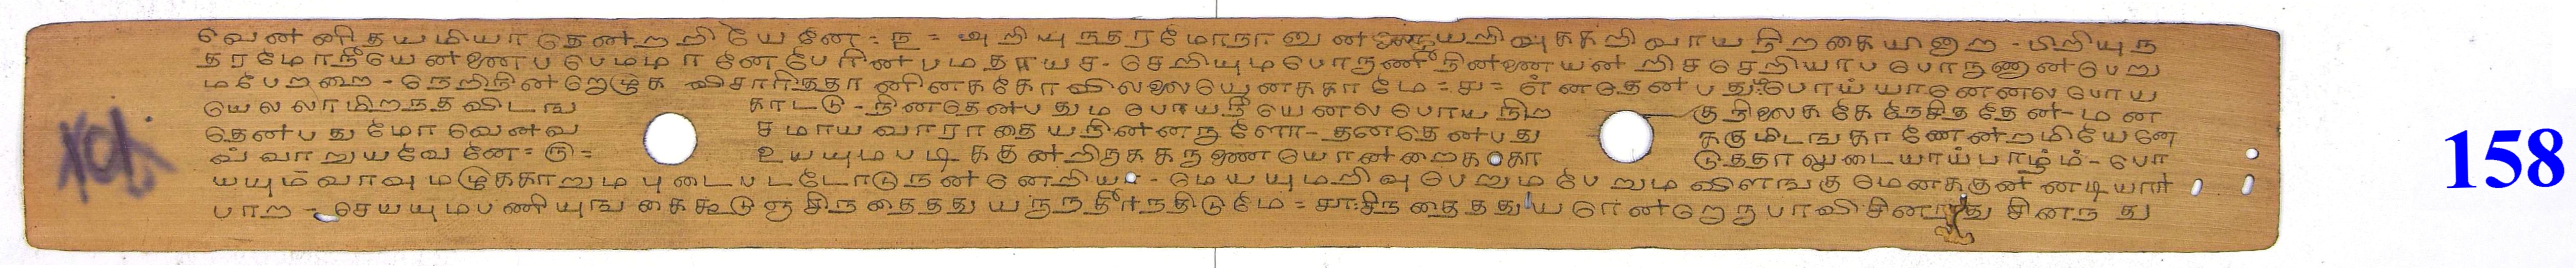 வெனனிதயமியாதெனறறியேனே = ௩ = அறியுநதரமோநானுன யறிவுககறிவாயநிறகையினுற - பிறியுந
தரமோநீயெனனைபபெமமானேபேரினபமதாயச - செறியுமபொருணீநினனையனறிசசெறியாபபொருணானபெறு
மபேறறை - நெறிநினறெழுக விசாரிததானினககோவிலலையெனககாமே = ௪ = எனதெனபதுபொயயானெனலபொய
யெலலாமிறநதவிடங காடடு - நினதெனபதுமபொயநீயெனலபொயநிற குநிலைககேநேசிததேன - மன
தெனபதுமோவெனவ சமாயவாராதையநினனருளோ - தனதெனபது ககுமிடஙகாணேனறமியேனே
வவாறுயவேனே = ௫ = உயயுமபடிககுனறிருககருணையொனறைக கா டுததாலுடையாயபாழம - பொ
யயுமவாவுமழுககாறுமபுடைபடடோடுநனனெறிய - மெயயுமறிவுபெறுமபேறுமவிளஙகுமெனககுனனடியார
பாற - செயயுமபணியுஙகைகூடுஞசிநதைததுயருநதீரநதிடுமே = ௬ = சிநதைததுயரெனறொருபாவிசினநது சினநது